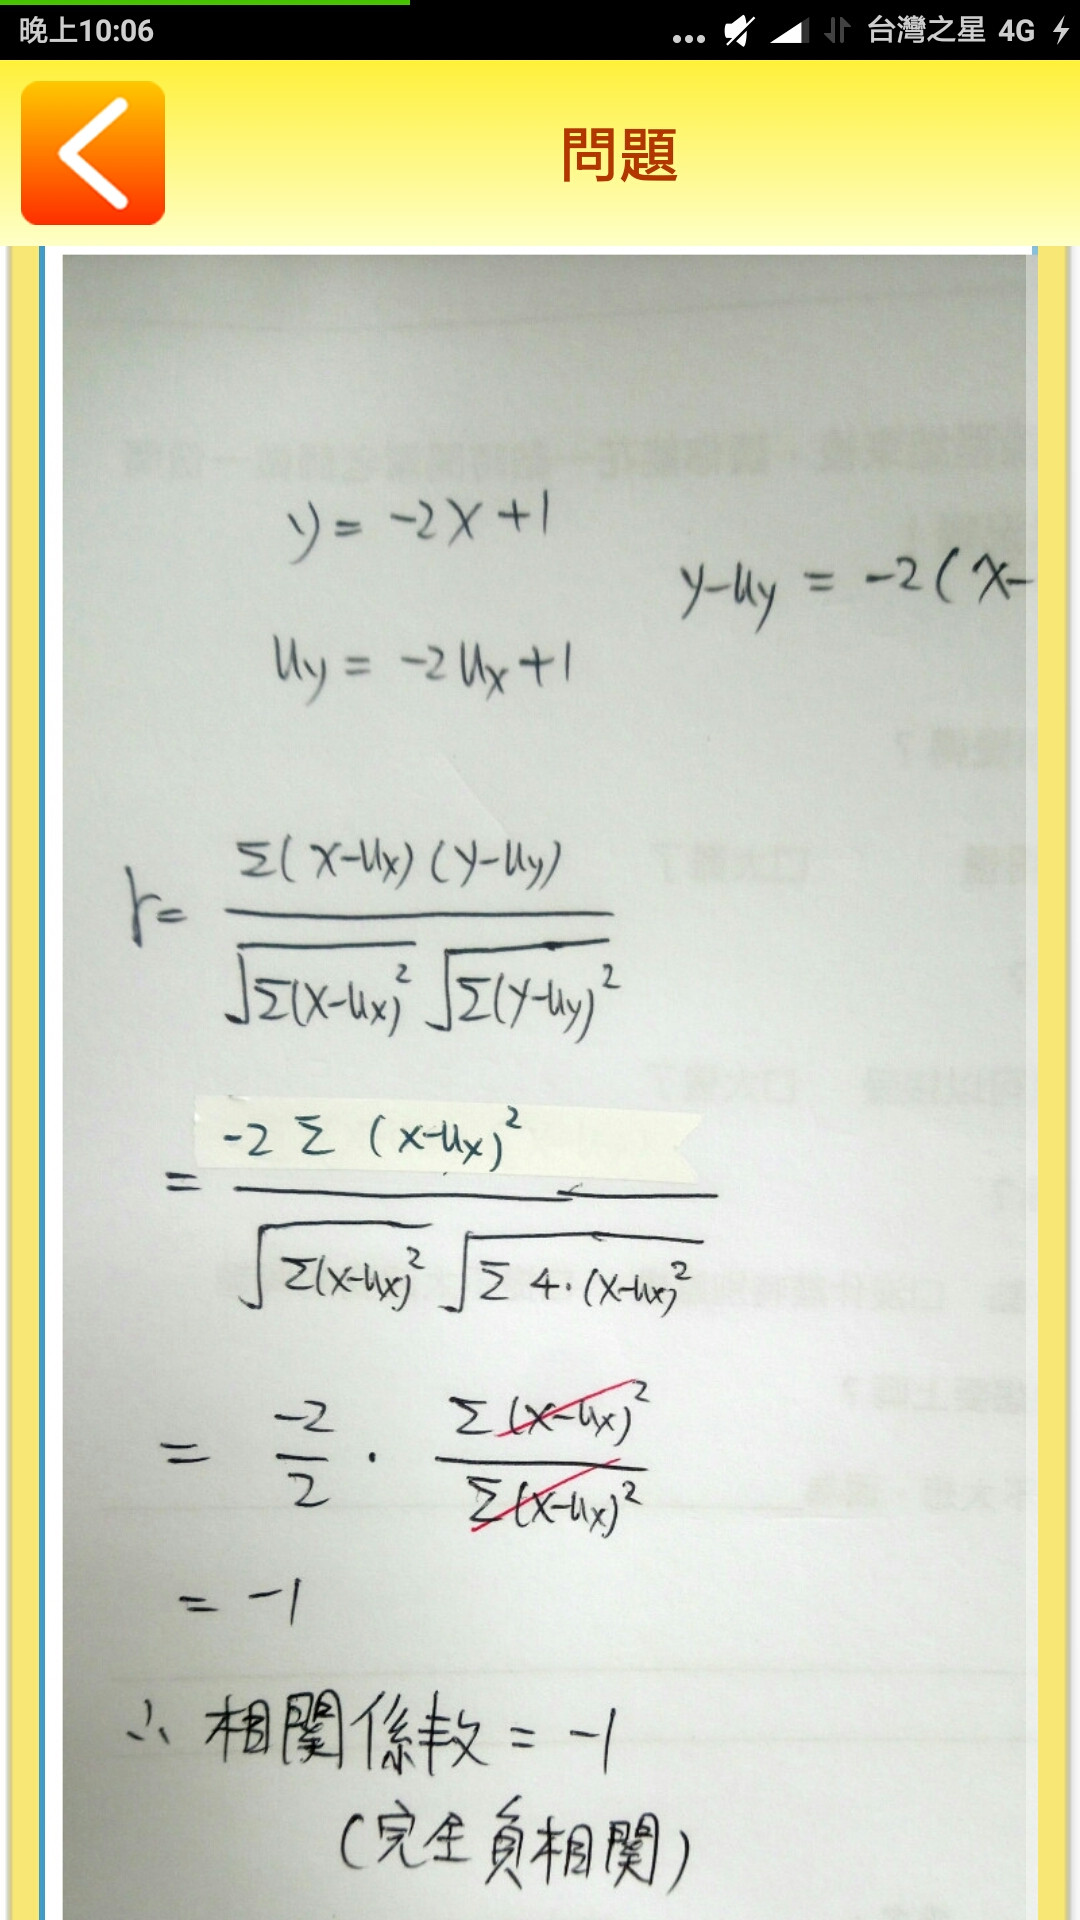 晚上10:06 ... 台灣之星 4G
問題
y = -2x + 1
y - uy = -2(x-
uy = -2ux + 1
r = Σ(x-ux)(y-uy) / √Σ(x-ux)² √Σ(y-uy)²
= -2 Σ (x-ux)² / √Σ(x-ux)² √Σ 4·(x-ux)²
= -2/2 · Σ(x-ux)² / Σ(x-ux)²
= -1
∴ 相關係数 = -1
(完全負相關)